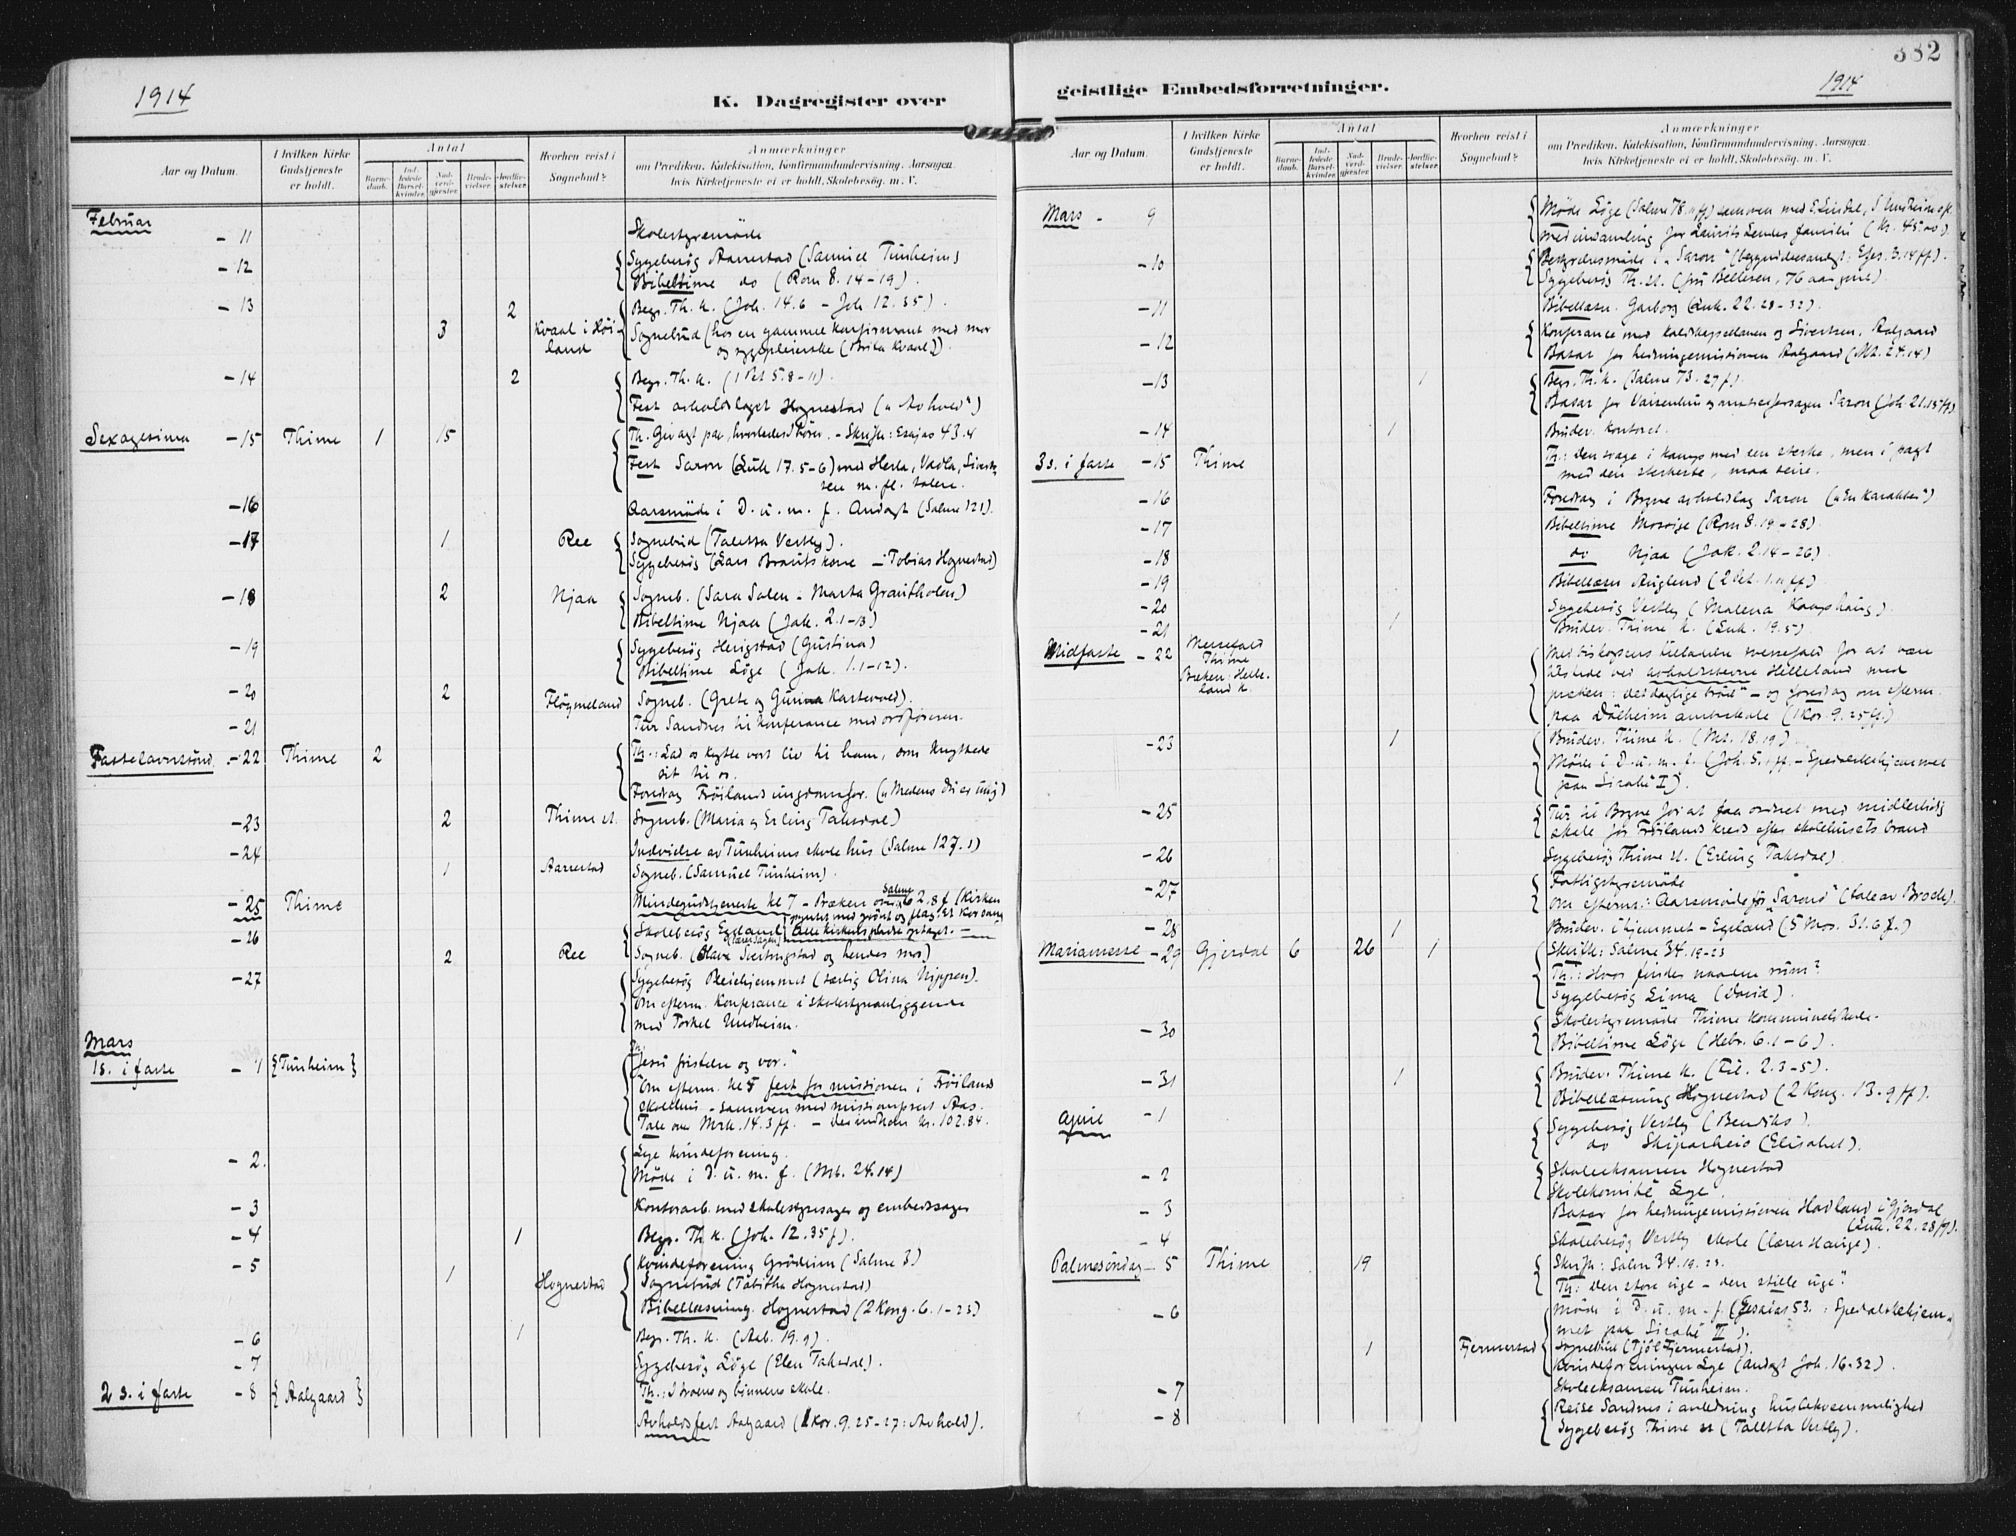 1914
K. Dagregister over
Aar og Datum.
I hvilken Kirke Gudstjeneste er holdt.
Antal
Barnedaab.
Indledede Barselkvinder.
Nadverdgjæster.
Brudevielser.
Jordfæstelser.
Hvorhen reist i Sognebud?
Anmærkninger
om Prædiken, Katekisation, Konfirmandundervisning, Aarsagen, hvis Kirketjeneste ei er holdt, Skolebesøg. m. V.
Februar
- 11 Skolestyremöde
- 12 Sygebesög Aarrestad (Samuel Tunheim)
Bibeltime do (Rom 8.14-19).
- 13 2 Begr. Th. k. (Joh. 14.6 - Joh 12.35).
3 Kvaal i Höiland Sognebud (hos en gammel konfirmant med mor
og sygepleierske (Brita Kvaal)).
- 14 2 Begr. Th. k. (1 Pet 5.8-11).
Fest avholdslaget Hognestad („Avhold")
Sexagesima - 15 Thime 1 15 Th. Giv agt paa, hvorledes I hörer. - Skrift: Esajas 43.4
Fest Saron (Luk 17.5-6) med Hesla, Vadla, Sivert
sen m. fl. talere.
- 16 Aarsmöde i D. u. m. f. Andagt (Salme 121).
- 17 1 Ree Sognebud (Taletta Vestly).
Sygebesög (Lars Brautskone - Tobias Hognestad)
- 18 2 Njaa Sogneb. (Sara Salen - Marta Grautholen)
Bibeltime Njaa (Jak. 2.1-13)
- 19 Sygebesög Herigstad (Gustina)
Bibeltime Löge (Jak. 1.1-12).
- 20 2 Flöymeland Sogneb. (Grete og Gunna Kartevold).
- 21 Tur Sandnes til konferance med ordföreren.
Fastelavnssönd. - 22 Thime 2 Th.: Lad os knytte vort liv til ham, som knyttede
sit til os.
Foredrag Fröilands ungdomsfor. („Medens du er ung")
- 23 2 Thime st. Sogneb. (Maria og Erling Taksdal)
- 24 Indvielse av Tunheims skolehus (Salme 127.1)
1 Aarrestad Sogneb. (Samuel Tunheim).
- 25 Thime Mindegudstjeneste kl 7 - Præken over Salme 62.8 f (Kirken
pyntet med grönt og flag. Et kor sang
- 26 Skolebesög Eggland Alle kirkens pladse optaget. -
2 Ree Sogneb. (Olava Sveitingstad og hendes mor)
- 27 Sygebesög Pleiehjemmet (særlig Olina Nippen).
Om efterm. Konferance i skolestyreanliggende
med Torkel Undheim.
Mars
1 s. i faste - 1 {Tunheim} Th. Jesu fristelse og vor."
Om efterm. kl 5 fest for missionen i Fröiland
skolehus - sammen med missionsprest Aas.
Tale over Mrk. 14.3 ff. - Der indkom kr. 102.84.
- 2. Lye kvindeforening.
Möde i D. u. m. f. (Mt. 24.14)
- 3 Kontorarb. med skolestyresager og embedssager
- 4 1 Begr. Th k. (Joh. 12.35 f).
- 5 Kvindeforening Grödeim (Salme 3)
1 Hognestad Sognebud (Tabitha Hognestad)
Bibellæsning Hognestad (2 Kong. 6.1-23)
- 6 1 Begr. Th. k. (Aab. 19.9).
- 7 Sygebesög Löge (Elen Taksdal).
2 s. i faste - 8 {Aalgaard} Th.: I troens og bönnens skole.
Avholdsfest Aalgaard (1 Kor. 9.25-27: Avhold).
geistlige Embedsforretninger.
1914
382
Aar og Datum.
I hvilken Kirke Gudstjeneste er holdt.
Antal
Barnedaab.
Indledede Barselkvinder.
Nadverdgjæster.
Brudevielser.
Jordfæstelser.
Hvorhen reist i Sognebud?
Anmærkninger
om Prædiken, Katekisation, Konfirmandundervisning, Aarsagen, hvis Kirketjeneste ei er holdt, Skolebesög. m. V.
Mars - 9 Möde Löge (Salme 78.11 ff) sammen med E. Lindal,
med indsamling for Laurits Lendes familie (kr. 45.00).
- 10 Bestyrelsesmöde i „Saron" (begynderandagt: Efes. 3.14 ff).
Sygebesög Th. st. (76 aar gml).
- 11 Bibellæsn. Garborg (Luk. 22.28-32).
- 12 Konferance med og Sivertsen, Aalgaard
Basar for hedningemissionen Aalgaard (Mt. 24.14)
- 13 1 Begr. Th. k. (Salme 73.27 f).
Basar for Saron (Joh 21.15 ff).
- 14 1 Brudev. kontoret.
3 s. i faste - 15 Thime Th: den svage i kamp med den sterke, men i pagt
med den sterkeste, maa seire.
- 16 Foredrag i Bryne avholdslag Saron („En karakter")
- 17 Bibeltime Mossige (Rom 8.19-28).
- 18 do Njaa (Jak. 2.14-26).
- 19 Bibellæsn Auglend (2 Pet. 1.11 ff)
- 20 Sygebesög Vestly (Malena Kampshaug).
- 21 1 Brudev. Thime k. (Luk. 19.5).
Midfaste - 22 Messefald
Thime
Præken: Helleland k.
Med biskopens tillatelse messefald for at være
tilstede ved avholdsstevne Helleland med
præken: „det daglige bröd" - og foredrag om efterm.
paa Dalheim amtsskole (1 Kor. 9.25 ff.)
- 23 1 Brudev. Thime k. (Mt. 18.19).
Möde i D. u. m. f. (Joh. 5.1 ff. - Spedalskehjemmet
paa Sirabé I).
- 25 Tur til Bryne for at faa ordnet med midlertidig
skole for Fröilands kreds efter skolehusets brand
- 26 Sygebesög Thime st. (Erling Taksdal).
- 27 Fattigstyremöde
Om efterm.: Aarsmöde for „Saron" (tale av Brode).
- 28 1 Brudev. i hjemmet - Egeland (5 Mos. 31.6 f.)
Mariamesse - 29 Gjesdal 6 26 1 Skrift: Salme 34.19-23
Th.: Hvor findes naaden rum?
Sygebesög Lima (David).
- 30 Skolestyremöde Thime kommunelokale.
Bibeltime Löge (Hebr. 6.1-6).
- 31 1 Brudev. Thime k. (Fil. 2.3-5).
Bibellæsning Hognestad (2 Kong. 13.9 ff).
April - 1 Sygebesög Vestly (Bendiks).
do Skjparheio (Elisabet).
- 2 Skoleeksamen Hognestad
Skolekomité Lye.
- 3 Basar for hedningemissionen Havland i Gjesdal
(Luk. 22.28 ff).
- 4 Skolebesög Vestly skole (lærer Hauge).
Palmesöndag - 5 Thime 19 Skrift: Salm 34.19.23.
Th: den store uge - den stille uge".
- 6 Möde i D. u. m. f. (Esaias 53.: Spedalskehjemmet
paa Sirabé II).
1 Fjermestad Sognebud (Fjermestad).
Kvindeforeningen Lye (andagt Joh. 16.32).
- 7 Skoleeksamen Tunheim.
- 8 Reise Sandnes i anledning husbekvemmelighed
Sygebesög Thime st (Taletta Vestly).